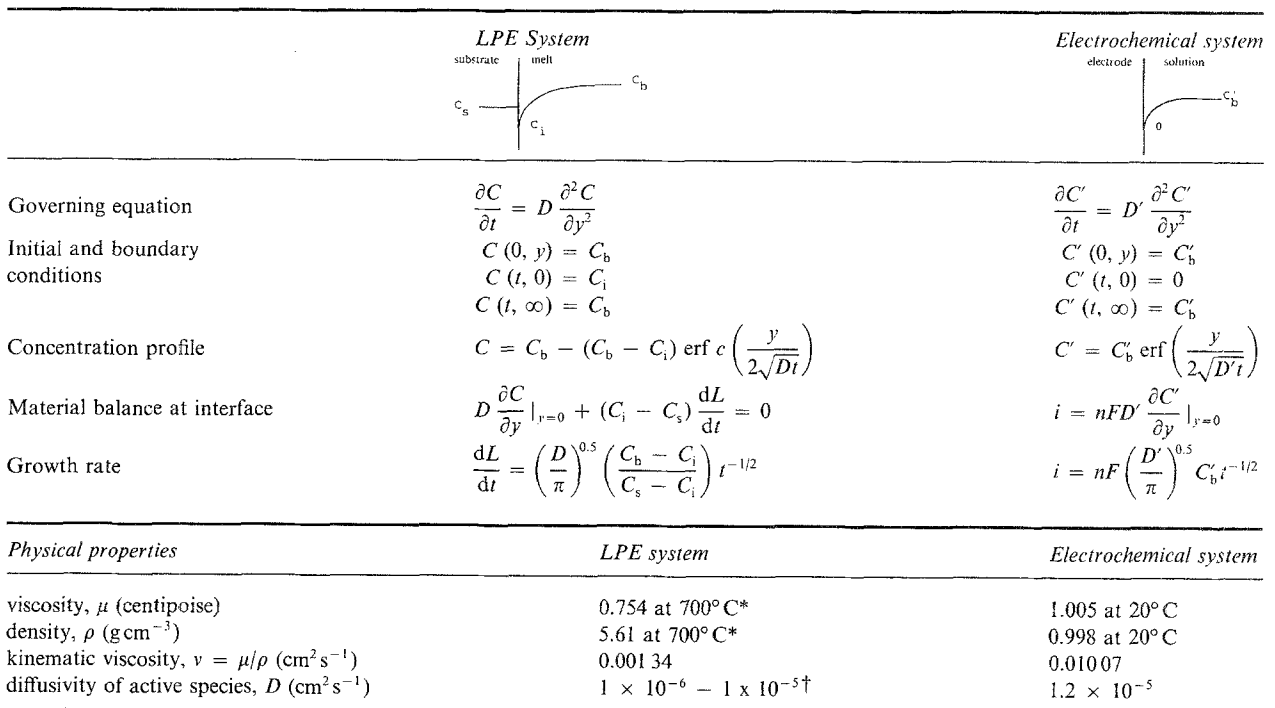 LPE System Electrochemical system
substrate melt electrode solution
C_b C'_b
C_s
C_i 0
Governing equation ∂C/∂t = D ∂²C/∂y² ∂C′/∂t = D′ ∂²C′/∂y²
Initial and boundary C (0, y) = C_b C′ (0, y) = C′_b
conditions C (t, 0) = C_i C′ (t, 0) = 0
C (t, ∞) = C_b C′ (t, ∞) = C′_b
Concentration profile C = C_b − (C_b − C_i) erf c (y/2√Dt) C′ = C′_b erf (y/2√D′t)
Material balance at interface D ∂C/∂y |_y=0 + (C_i − C_s) dL/dt = 0 i = nFD′ ∂C′/∂y |_y=0
Growth rate dL/dt = (D/π)^0.5 ((C_b − C_i)/(C_s − C_i)) t^−1/2 i = nF (D′/π)^0.5 C′_b t^−1/2
Physical properties LPE system Electrochemical system
viscosity, μ (centipoise) 0.754 at 700° C* 1.005 at 20° C
density, ρ (g cm⁻³) 5.61 at 700° C* 0.998 at 20° C
kinematic viscosity, ν = μ/ρ (cm² s⁻¹) 0.001 34 0.010 07
diffusivity of active species, D (cm² s⁻¹) 1 × 10⁻⁶ − 1 x 10⁻⁵† 1.2 × 10⁻⁵